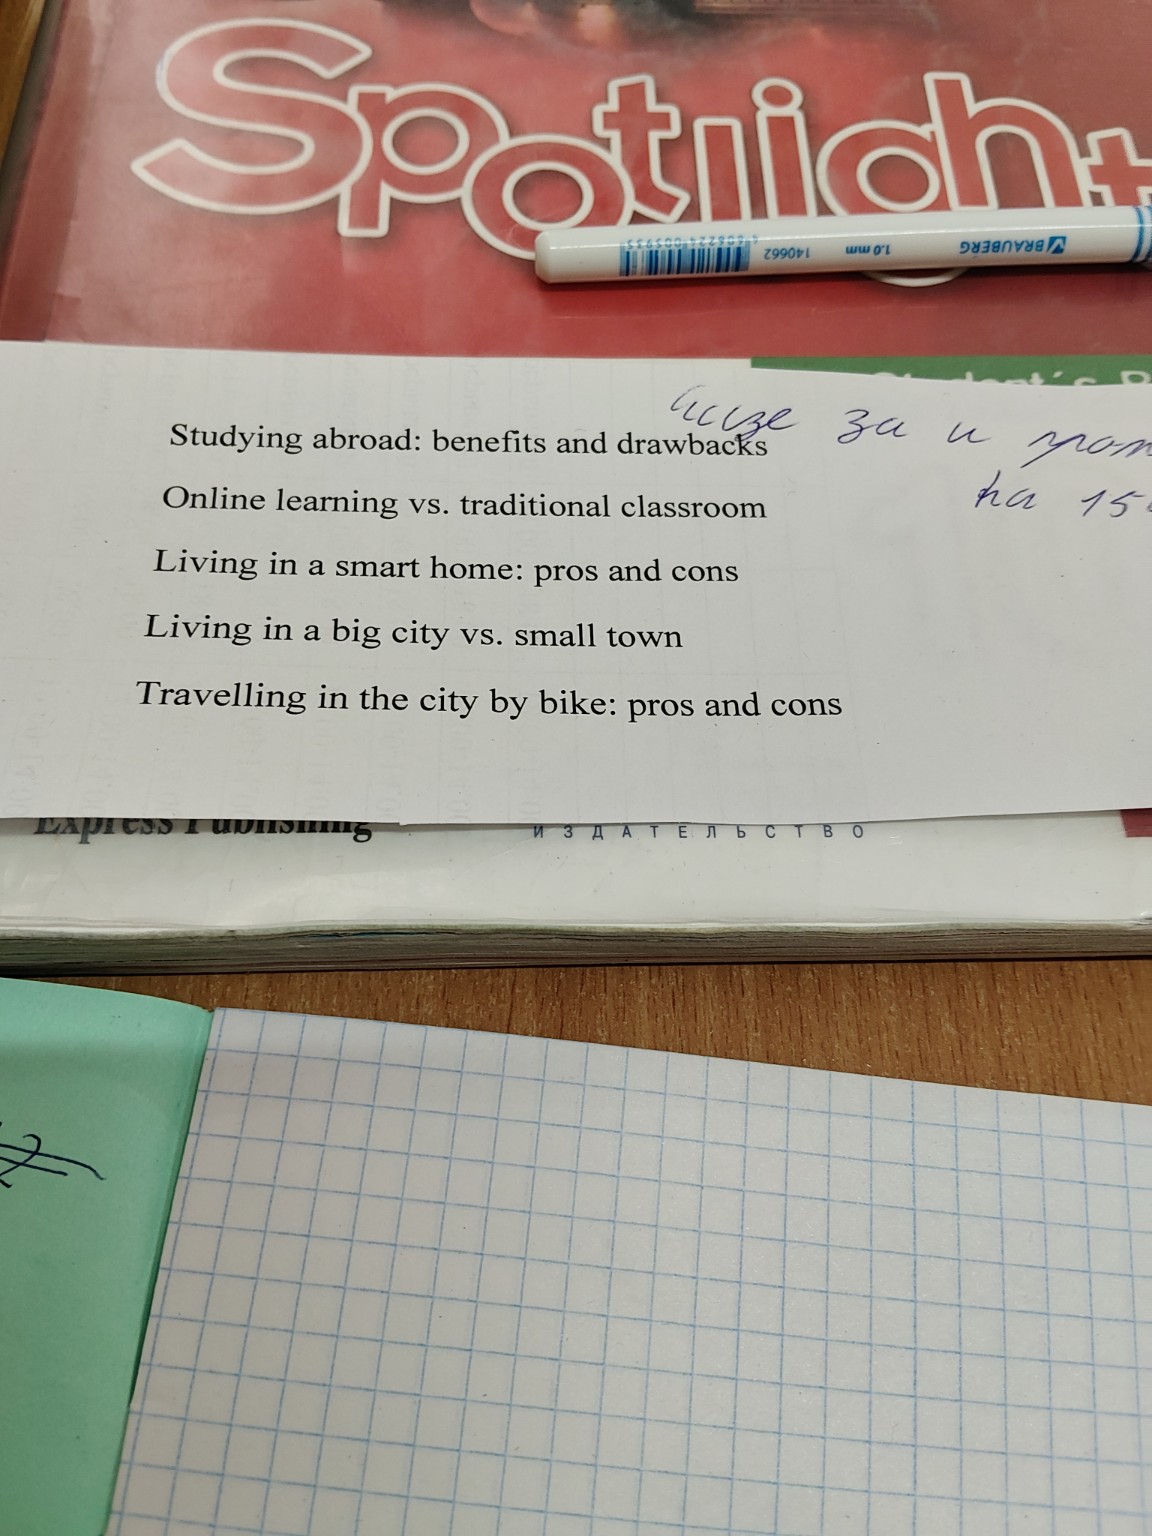 Spotligh
BRAUBERG 1.0 mm 140662
за и
на 15
Studying abroad: benefits and drawbacks
Online learning vs. traditional classroom
Living in a smart home: pros and cons
Living in a big city vs. small town
Travelling in the city by bike: pros and cons
Express Publishing
ИЗДАТЕЛЬСТВО